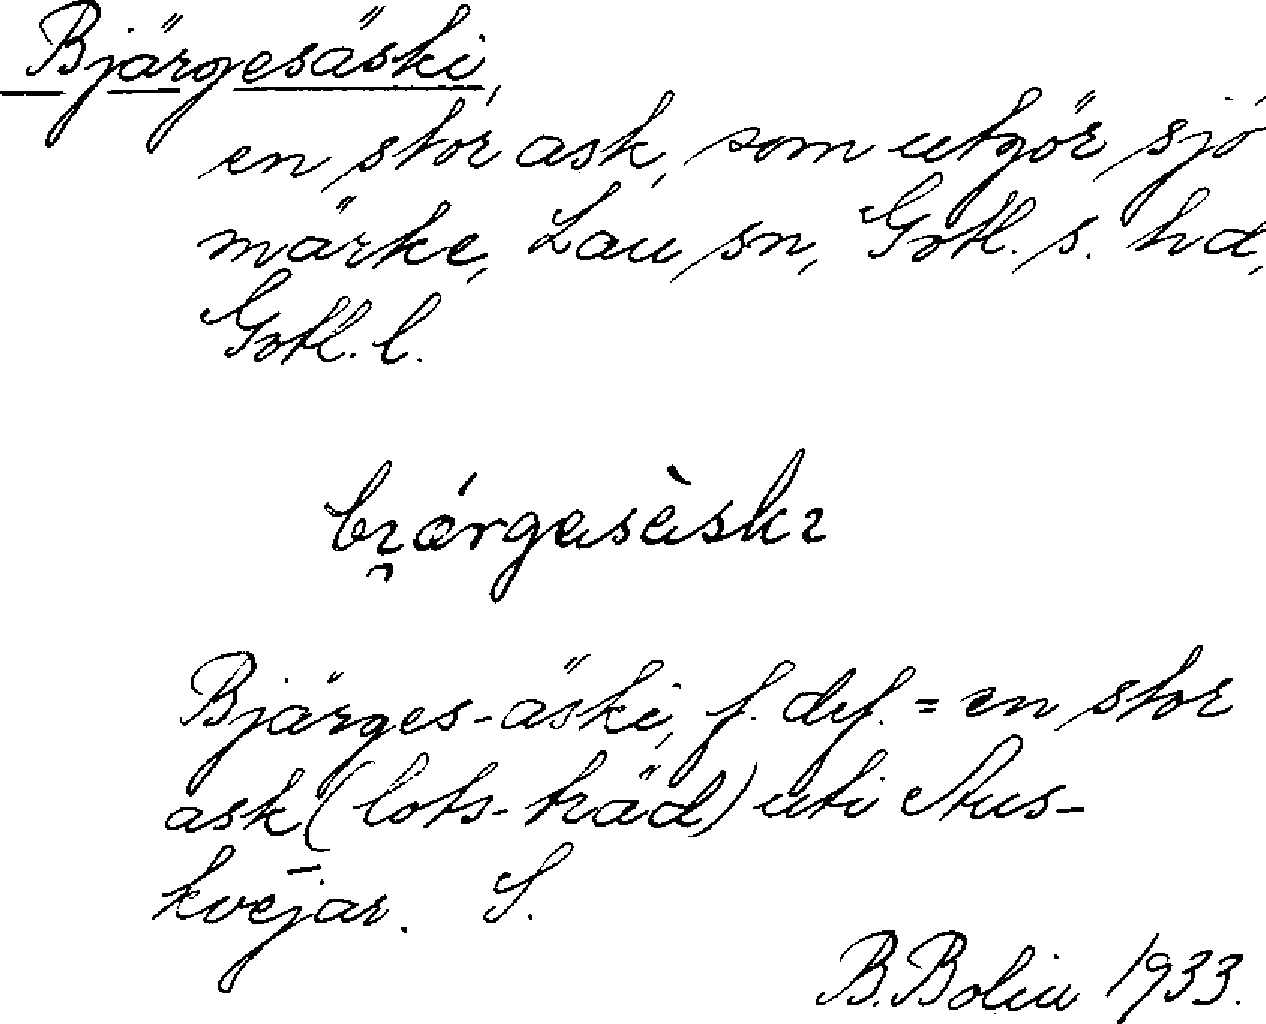 Bjärgesäski,
en stor ask, som utgör sjö
märke, Lau sn, Gotl. s. hd,
Gotl. l.
Bjärges-äski, f. def. = en stor
ask (lots-träd) uti Aus-
kvējar. S.
B. Bolin 1933.